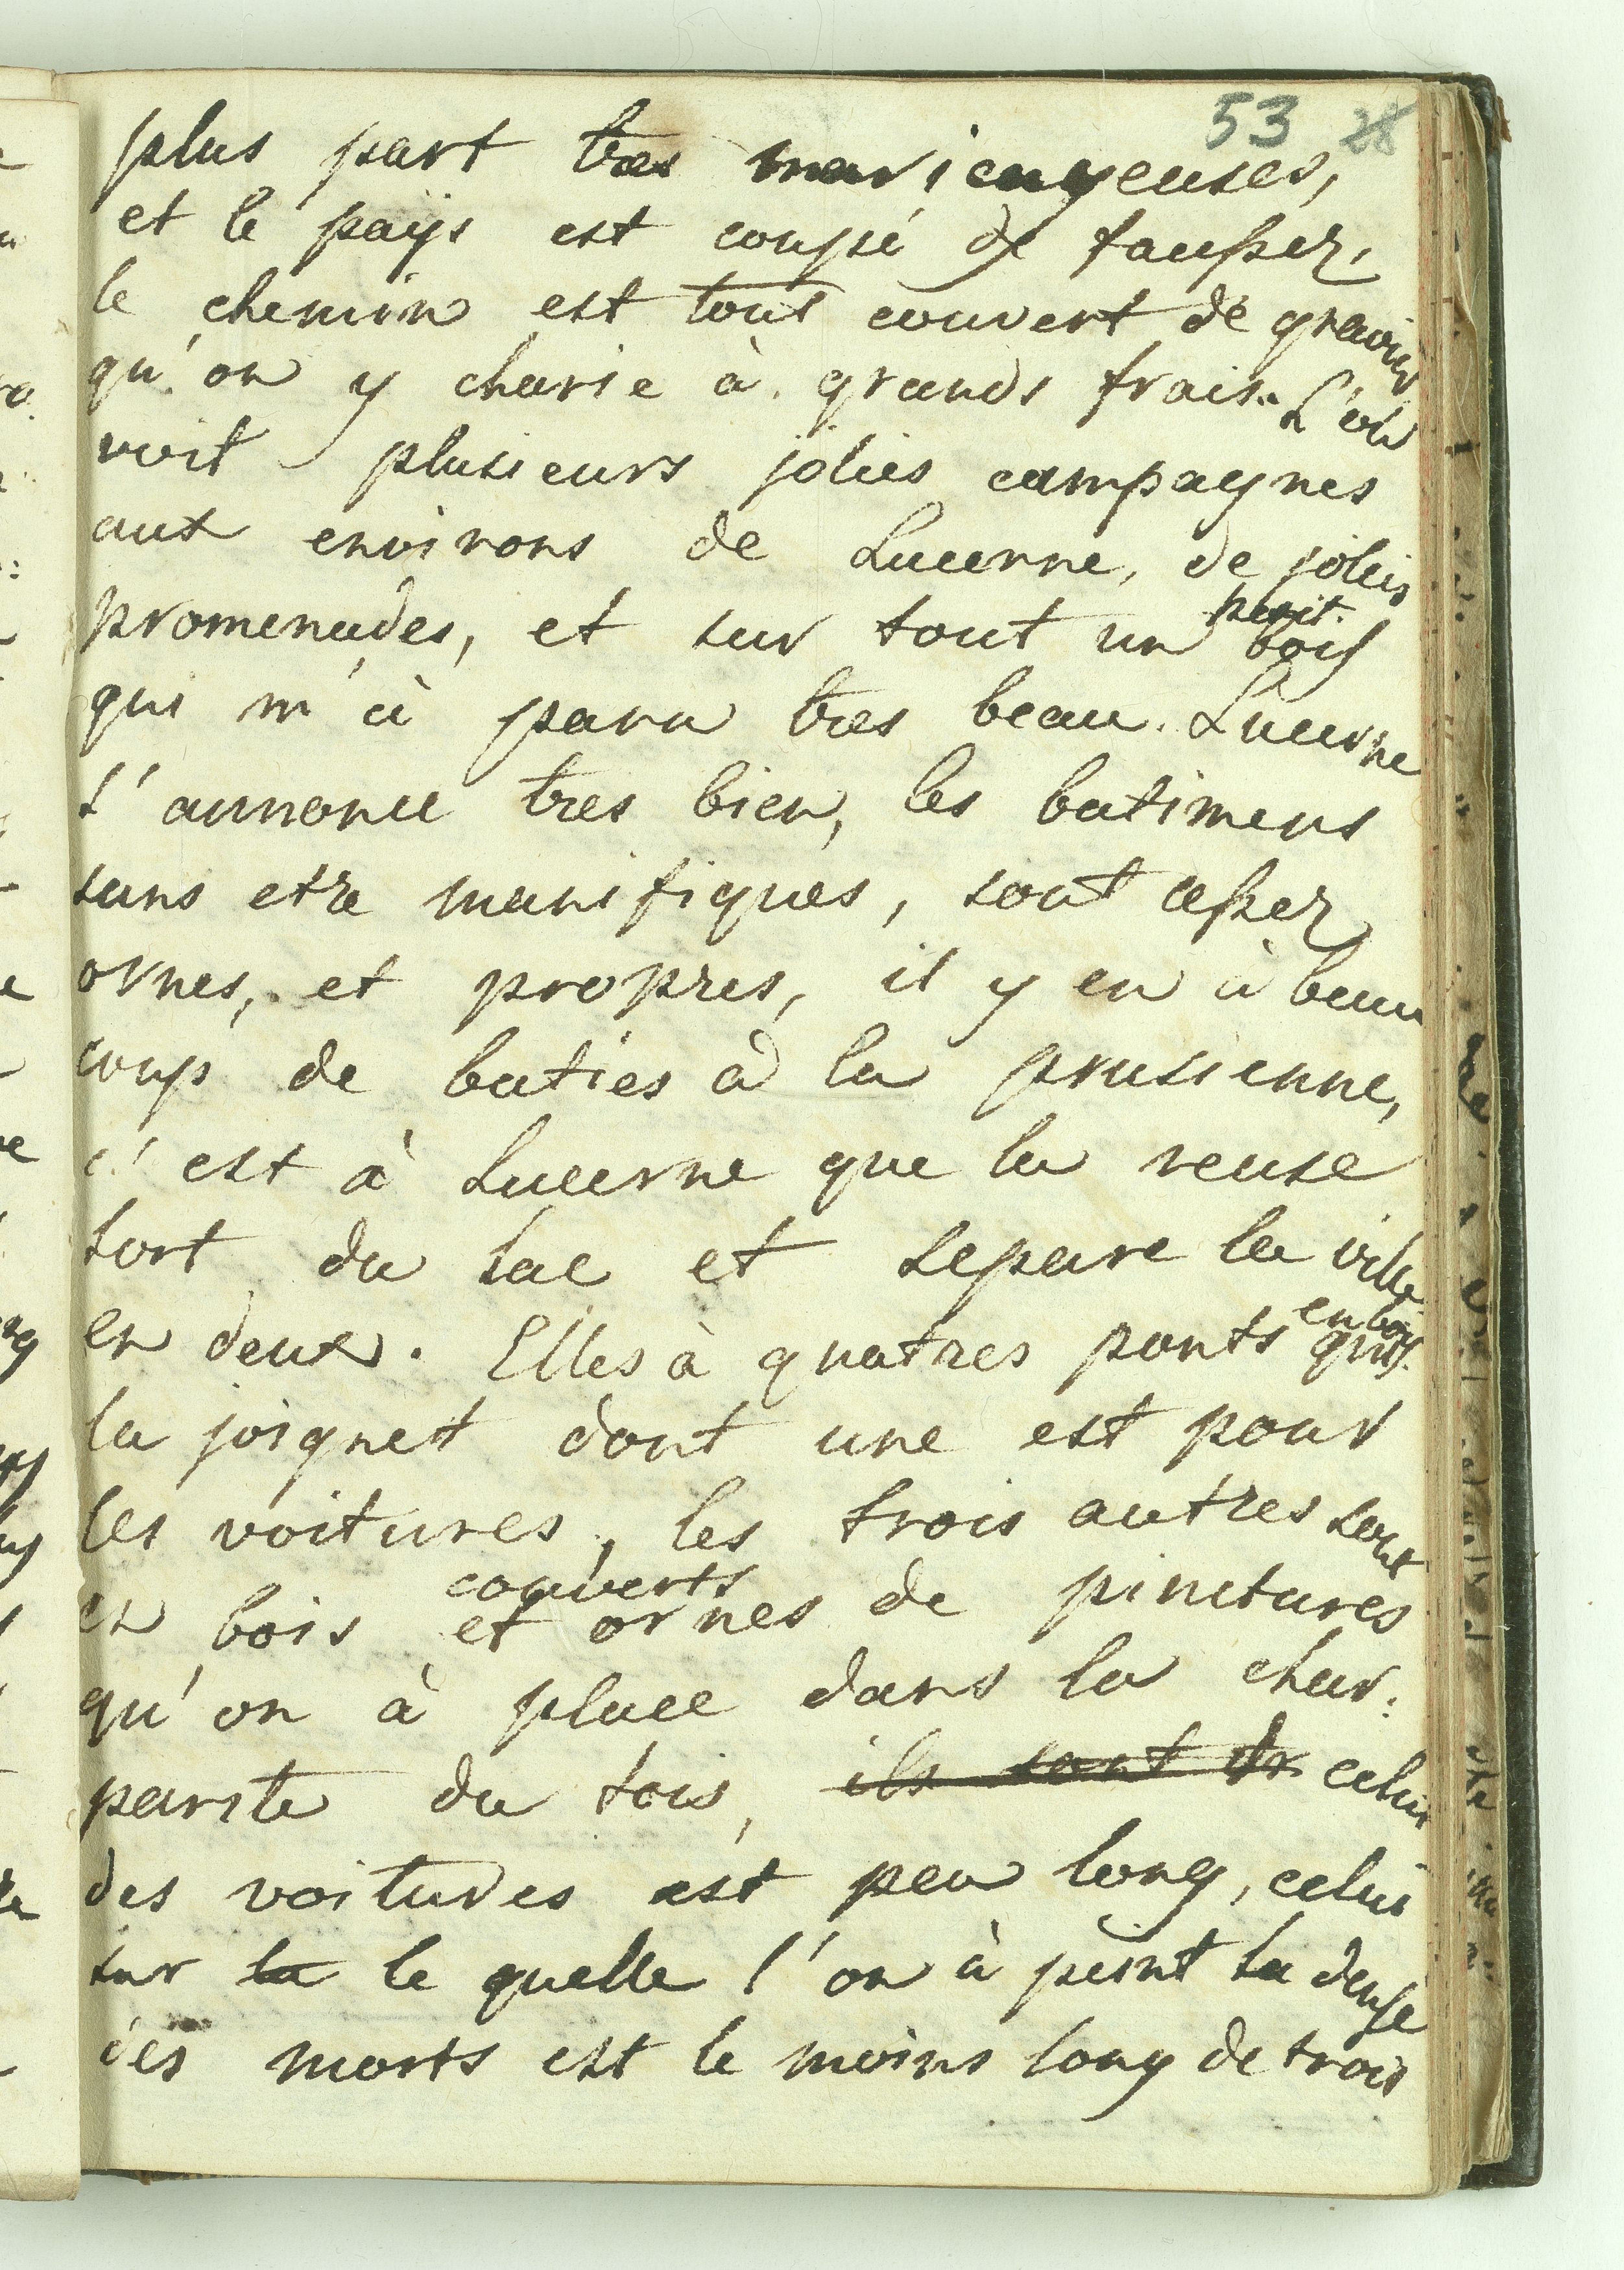 53 28
plus part tres maricageuses,
et le païjs est coupé de faussez,
le chemin est tout couvert de gravier
qu'on y charie à grands frais. L'on
voit plusieurs jolies campagnes
aux environs de Lucerne, de jolies
promenades, et sur tout un petit bois
qui m'à paru tres beau. Lucerne
s'annonce tres bien, les batimens
sans etre manifiques, sont assez
ornes, et propres, il y en à beau
coup de baties à la prusienne,
c'est à Lucerne que la reuse
sort du lac et separe la ville
en deux. Elles à quatres ponts en bois qui
la joignet dont une est pour
les voitures, les trois autres sont
en bois couverts et ornes de pinctures
qu'on à placé dans la char:
parite du tois, ils sont de celui
des voitures est peu long, celui
sur la le quelle l'on à peint la danse
des morts est le moins long de trois